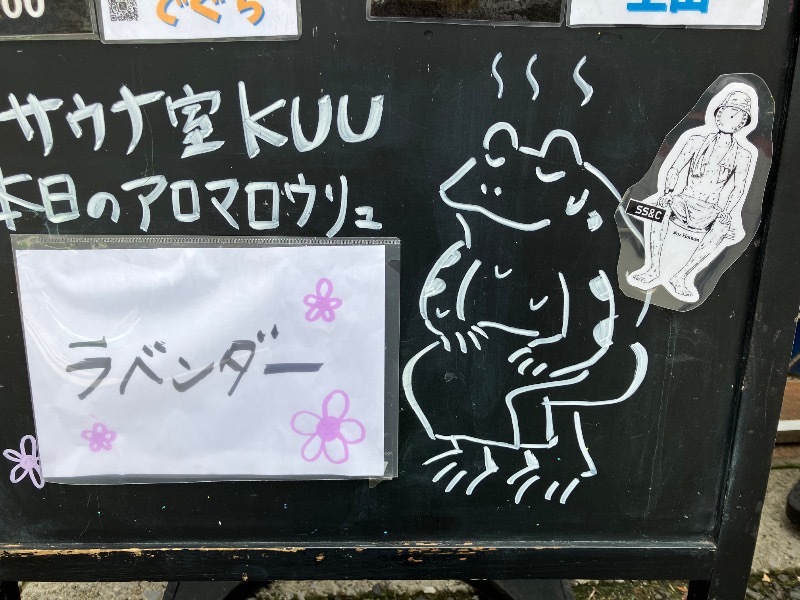 00
ぐぐら
サウナ室KUU
本日のアロマロウリュ
ラベンダー
SS&C